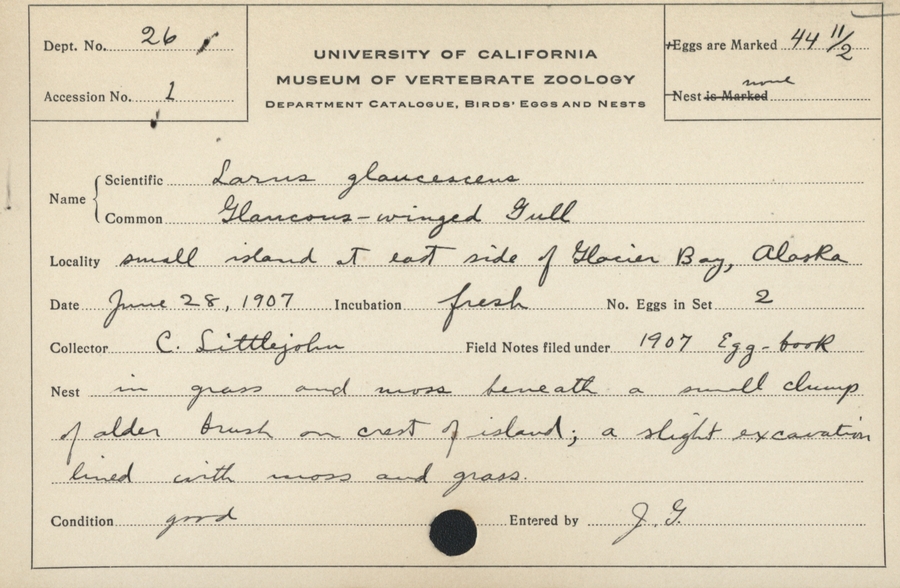 Dept. No. 26
Accession No. 1
UNIVERSITY OF CALIFORNIA
MUSEUM OF VERTEBRATE ZOOLOGY
DEPARTMENT CATALOGUE, BIRDS' EGGS AND NESTS
Eggs are Marked 44 11/2
none
Nest is Marked
Name
Scientific Larus glaucescens
Common Glaucous-winged Gull
Locality small island at east side of Glacier Bay, Alaska
Date June 28, 1907 Incubation fresh No. Eggs in Set 2
Collector C. Littlejohn Field Notes filed under 1907 Egg-book
Nest in grass and moss beneath a small clump
of alder brush on crest of island; a slight excavation
lined with moss and grass.
Condition good Entered by J. G.